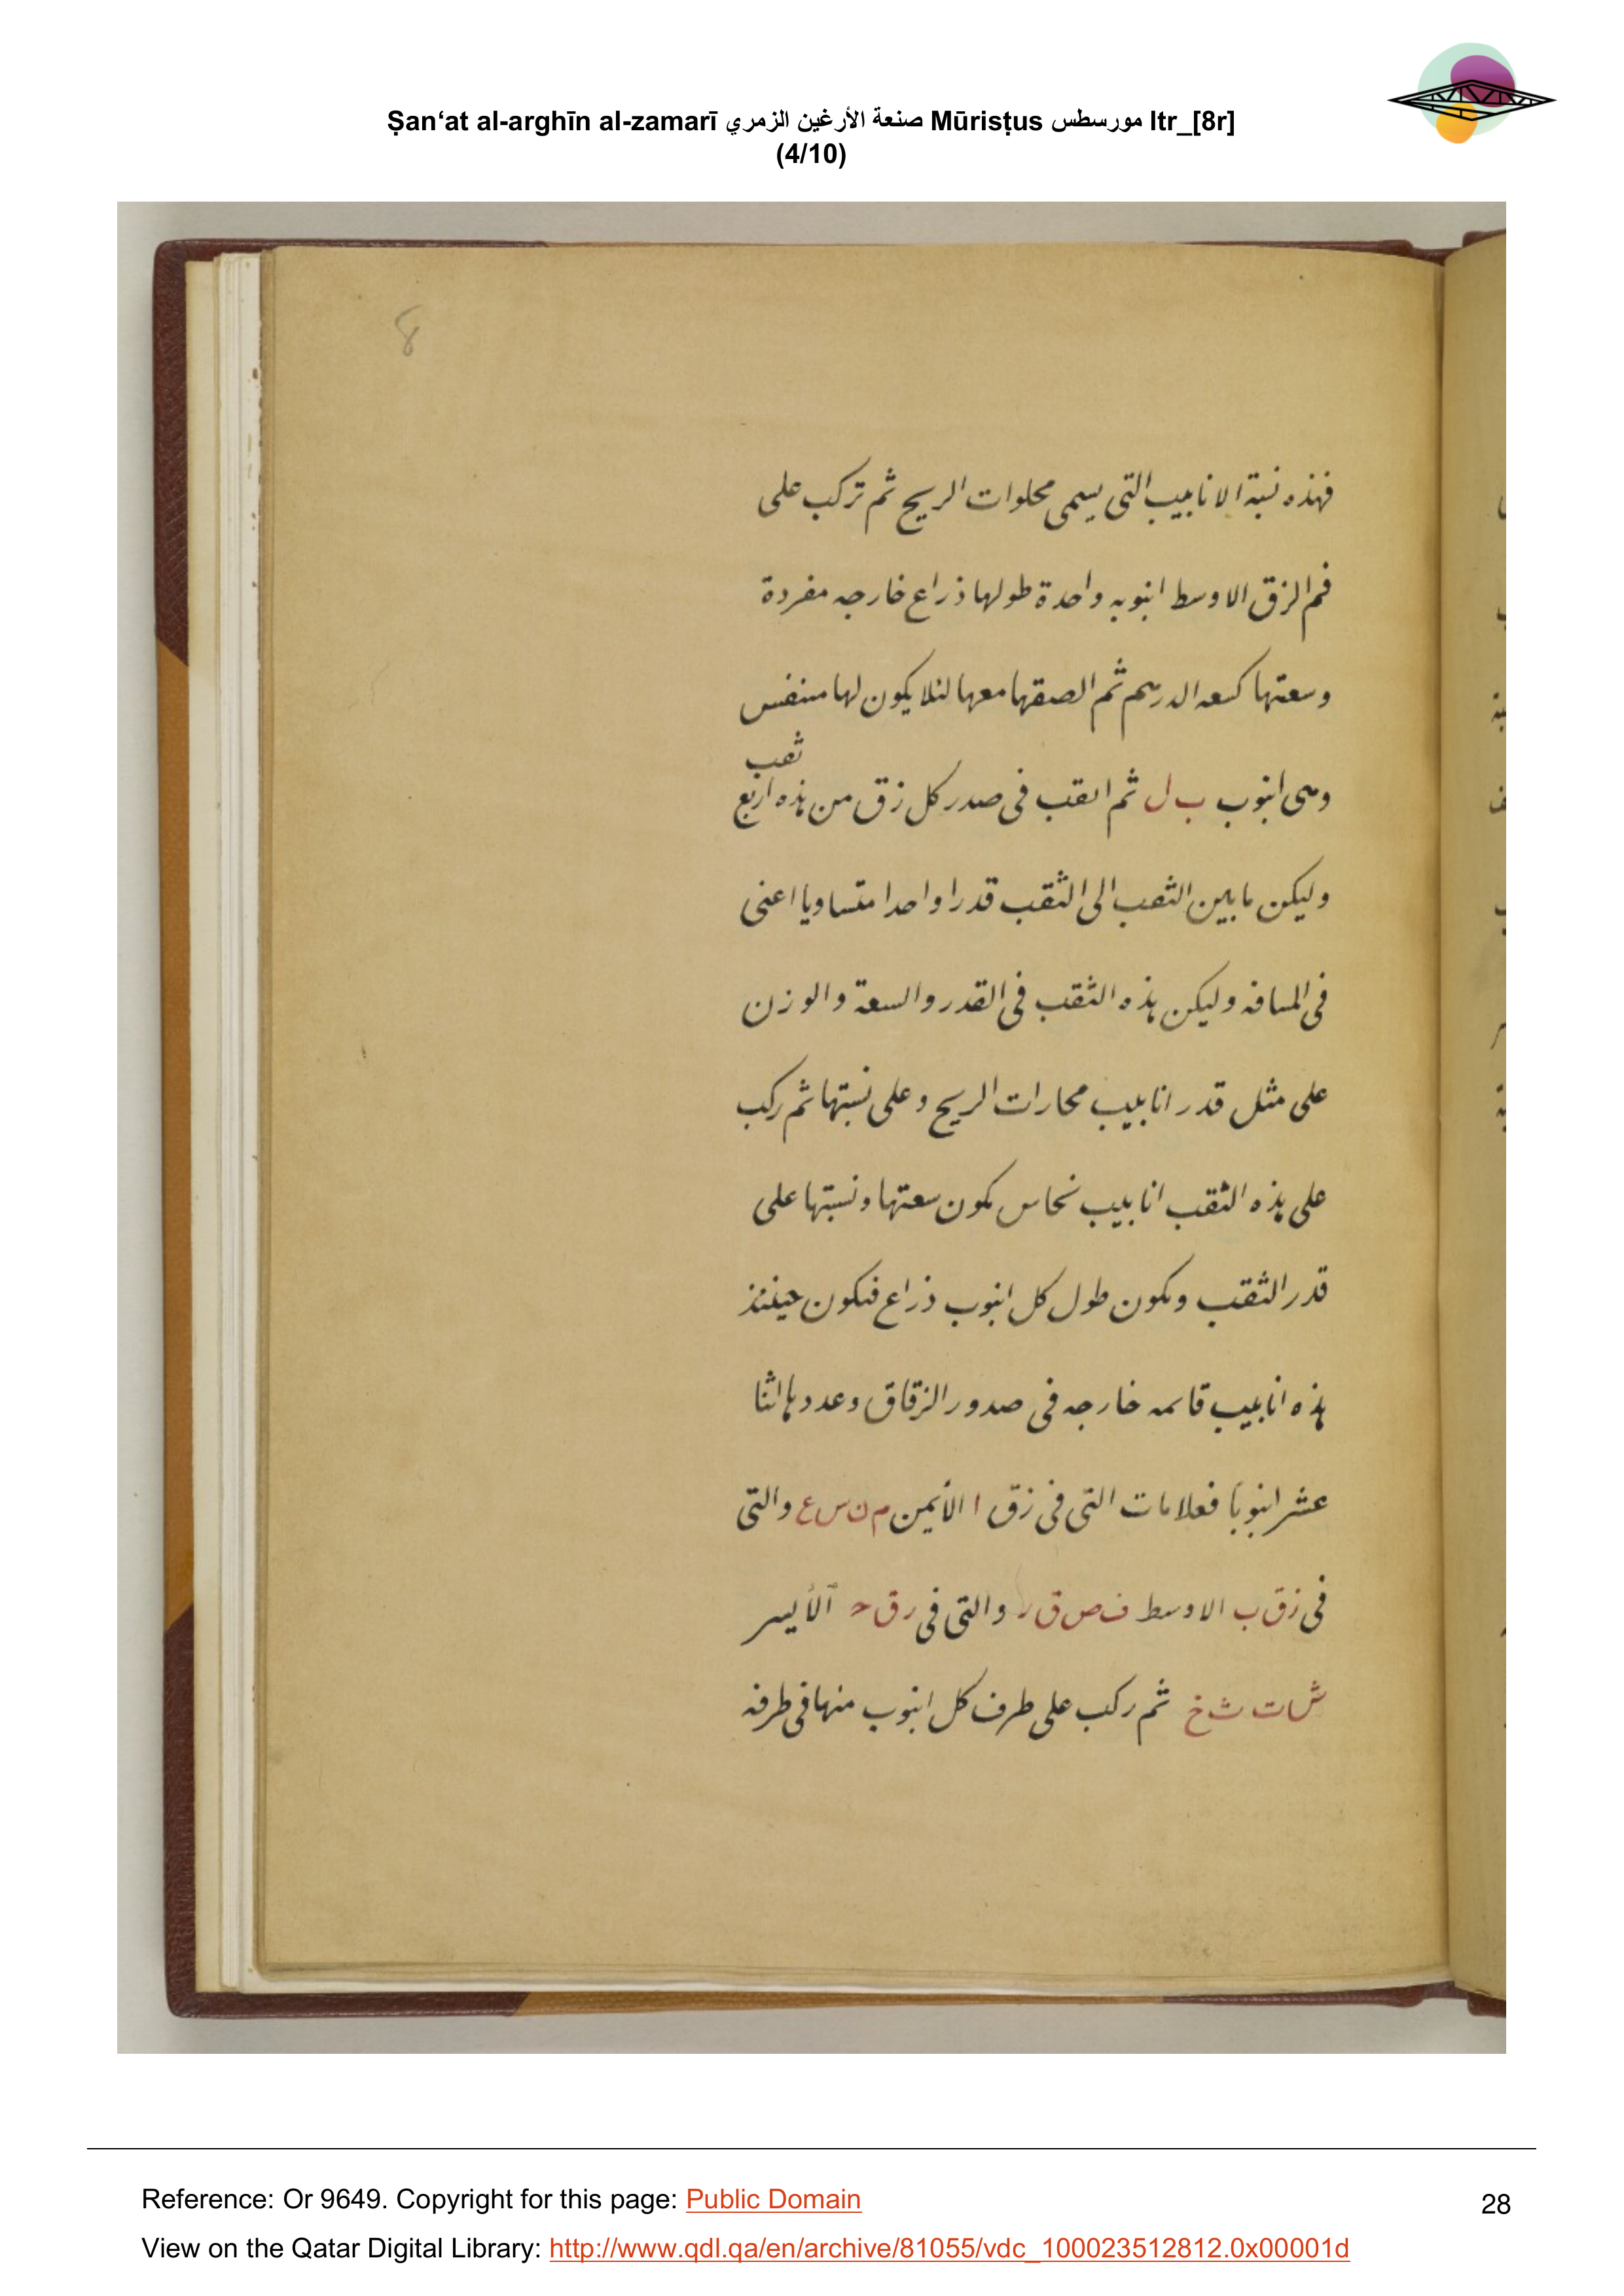 Ṣan‘at al-arghīn al-zamarī صنعة الأرغين الزمري Mūrisṭus مورسطس ltr_[8r]
(4/10)
8
فهذه نسبة الانابيب التى يسمى محلوات الريح ثم تركب على
فم الزق الاوسط انبوبه واحدة طولها ذراع خارجه مفردة
وسعتها كسعه الدرهم ثم الصقها معها لئلا يكون لها متنفس
ثقب
وهى انبوب ب ل ثم اثقب فى صدر كل زق من هذه اربع
وليكن ما بين الثقب الى الثقب قدرا واحدا متساويا اعنى
فى المسافه وليكن هذه الثقب فى القدر والسعة والوزن
على مثل قدر انابيب محارات الريح وعلى نسبتها ثم ركب
على هذه الثقب انابيب نحاس تكون سعتها ونسبتها على
قدر الثقب وتكون طول كل انبوب ذراع فتكون حينئذ
هذه انابيب قائمه خارجه فى صدور الزقاق وعددها اثنا
عشر انبوبا فعلامات التى فى زق ا الأيمن م ن س ع والتى
فى زق ب الاوسط ف ص ق ر والتى فى زق ح الأيسر
ش ت ث خ ثم ركب على طرف كل انبوب منها فى طرفه
Reference: Or 9649. Copyright for this page: Public Domain
28
View on the Qatar Digital Library: http://www.qdl.qa/en/archive/81055/vdc_100023512812.0x00001d